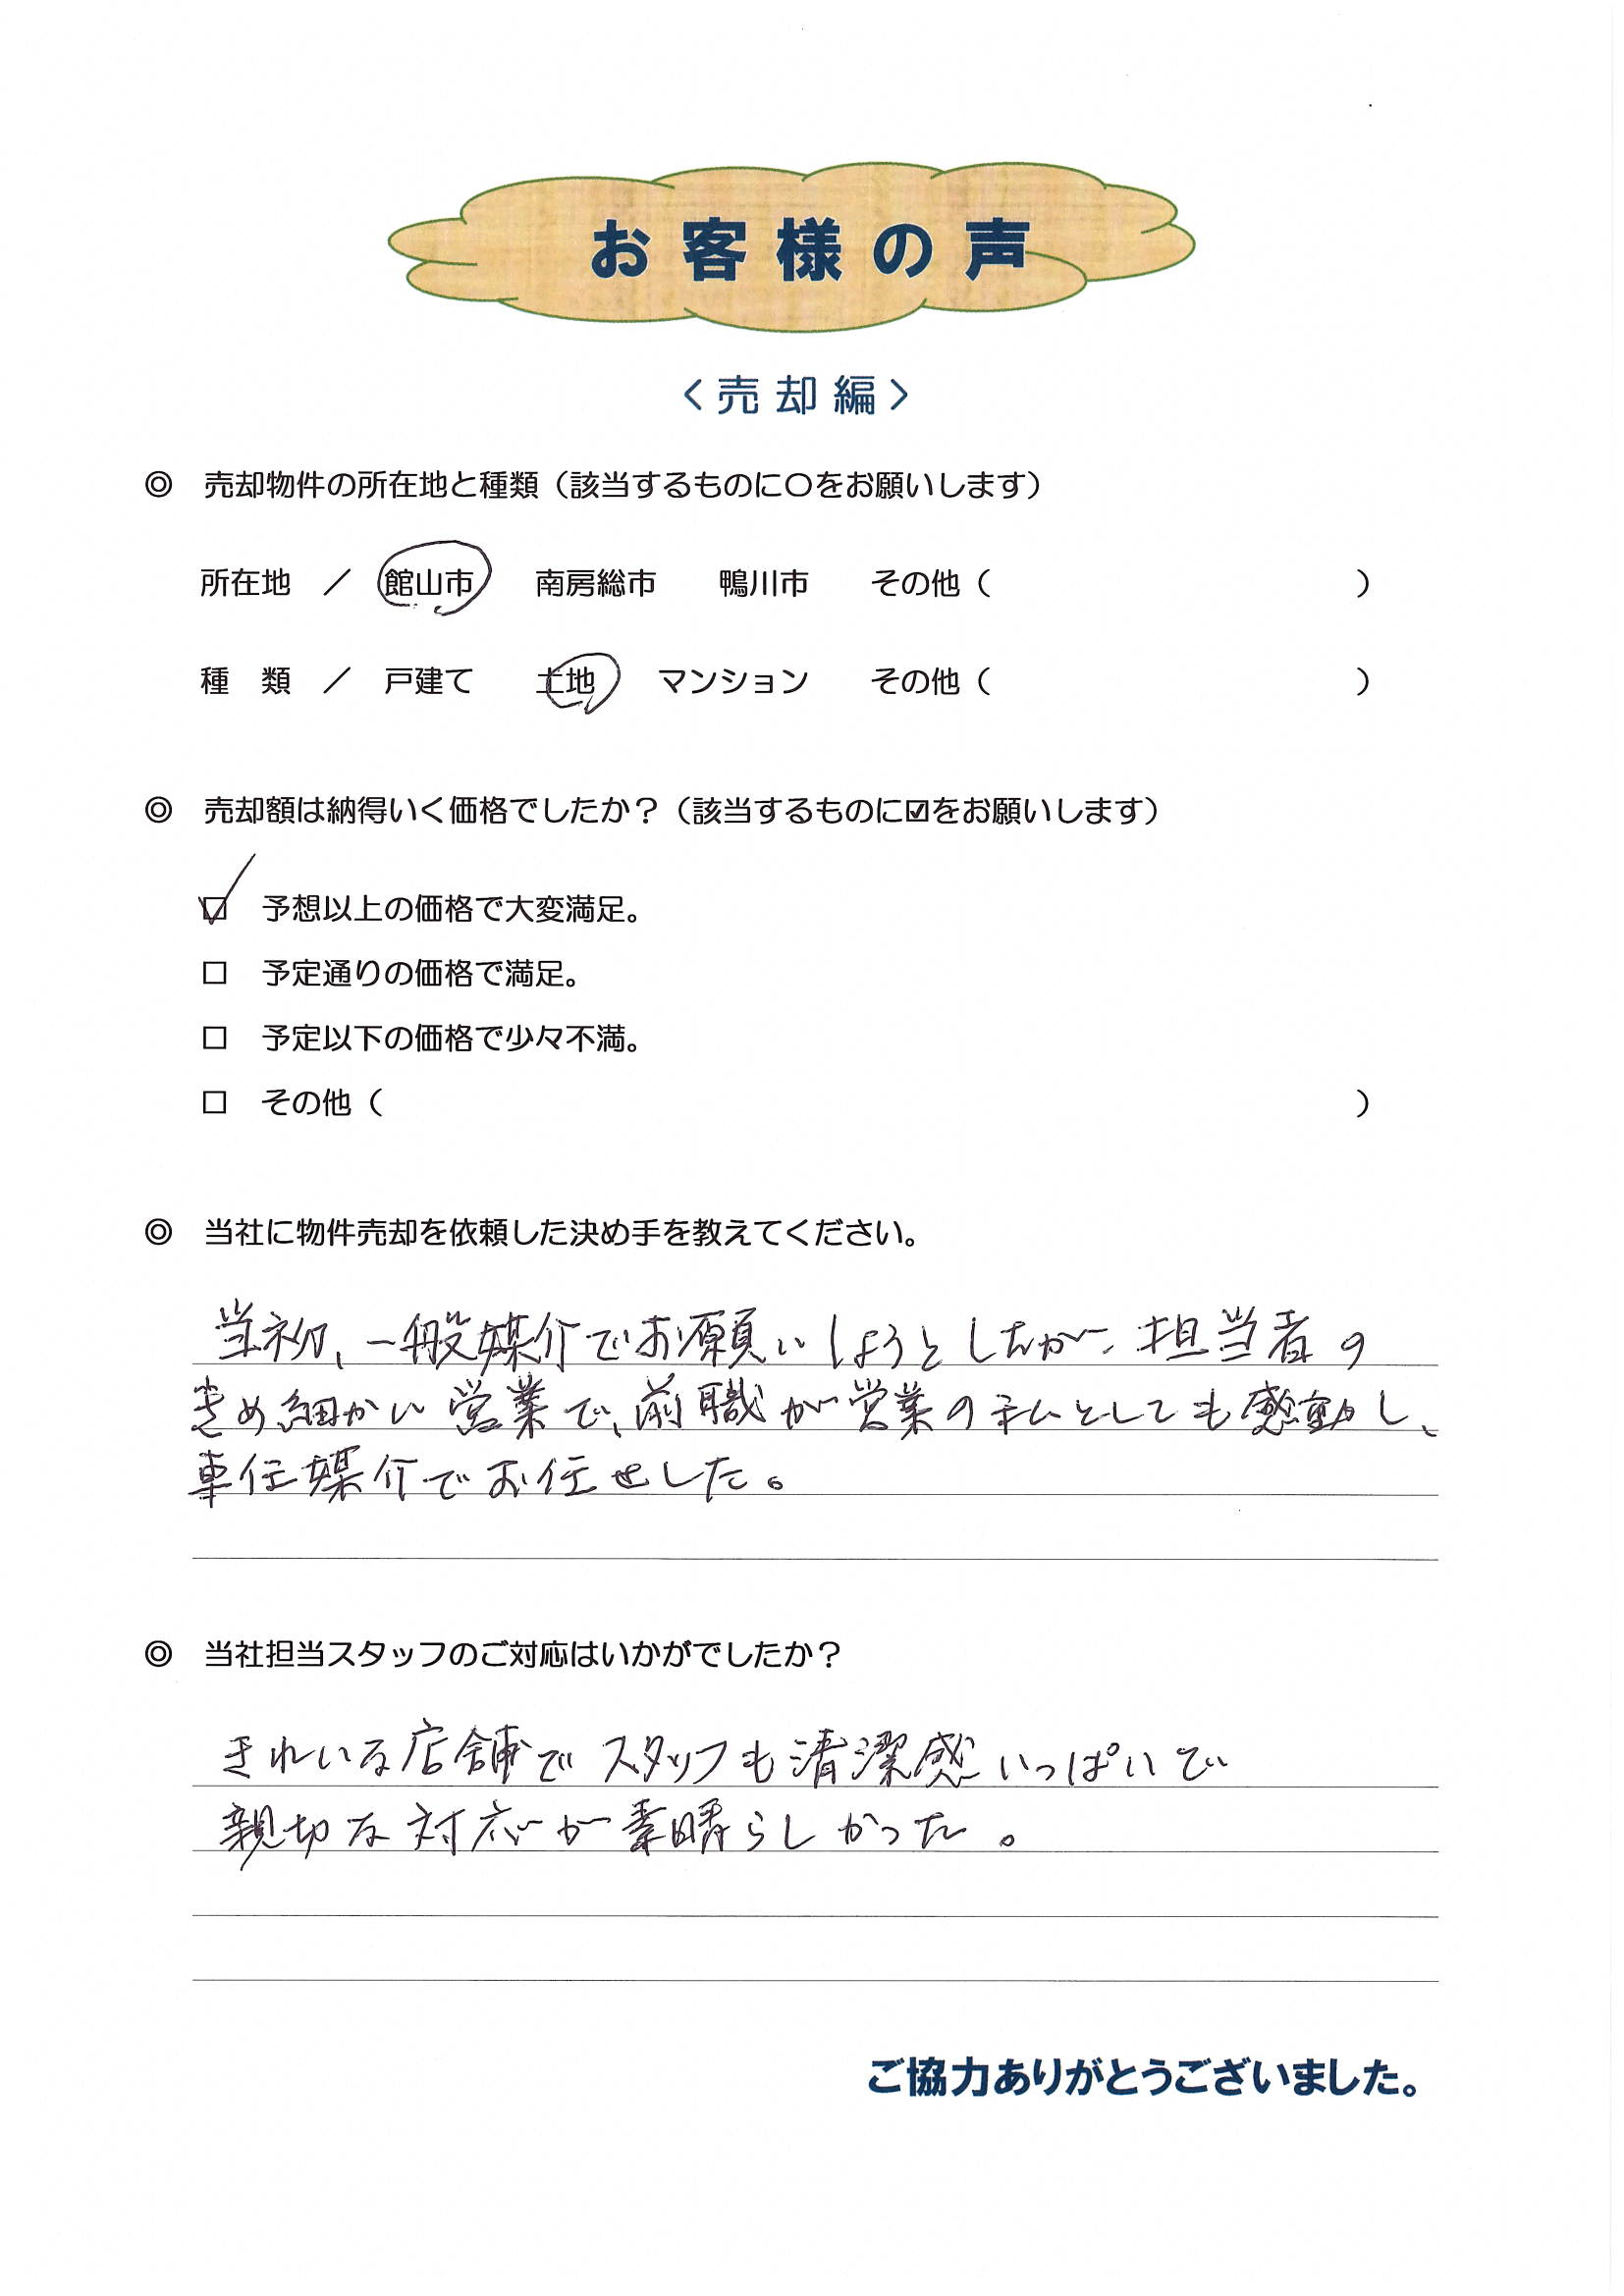 お客様の声
〈売却編〉
◎ 売却物件の所在地と種類（該当するものに〇をお願いします）
所在地 ／ 館山市 南房総市 鴨川市 その他（ ）
種 類 ／ 戸建て 土地 マンション その他（ ）
◎ 売却額は納得いく価格でしたか？（該当するものに☑をお願いします）
☑ 予想以上の価格で大変満足。
□ 予定通りの価格で満足。
□ 予定以下の価格で少々不満。
□ その他（ ）
◎ 当社に物件売却を依頼した決め手を教えてください。
当初、一般媒介でお願いしようとしたが、担当者の
きめ細かい営業で、前職が営業の私としても感動し、
専任媒介でお任せした。
◎ 当社担当スタッフのご対応はいかがでしたか？
きれいな店舗でスタッフも清潔感いっぱいで
親切な対応が素晴らしかった。
ご協力ありがとうございました。